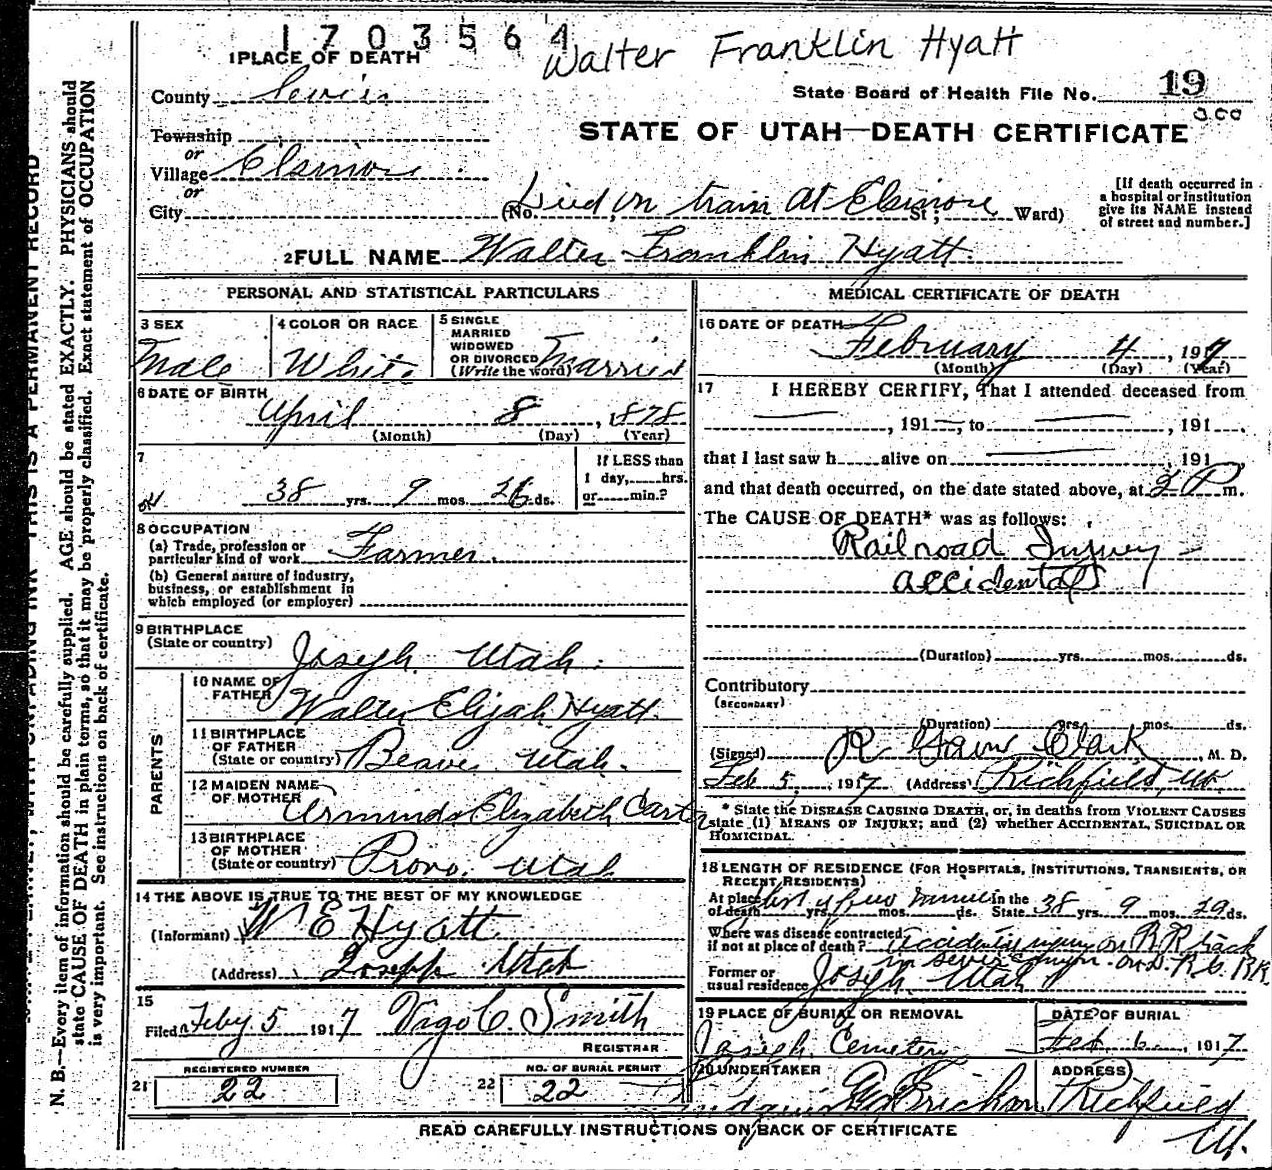 1703564
Walter Franklin Hyatt
1 PLACE OF DEATH
County Sevier
State Board of Health File No. 19
Township
STATE OF UTAH—DEATH CERTIFICATE
or
Village Elsinore
or
[If death occurred in a hospital or institution give its NAME instead of street and number.]
City (No. Died on train at Elsinore St; Ward)
2 FULL NAME Walter Franklin Hyatt.
PERSONAL AND STATISTICAL PARTICULARS
3 SEX
Male
4 COLOR OR RACE
White
5 SINGLE
MARRIED
WIDOWED
OR DIVORCED
(Write the word) Married
6 DATE OF BIRTH
April 8, 1878
(Month) (Day) (Year)
7
38 yrs. 9 mos. 26 ds.
If LESS than
1 day, hrs.
or min.?
8 OCCUPATION
(a) Trade, profession or
particular kind of work Farmer.
(b) General nature of industry,
business, or establishment in
which employed (or employer)
9 BIRTHPLACE
(State or country)
Joseph. Utah.
PARENTS
10 NAME OF
FATHER
Walter Elijah Hyatt.
11 BIRTHPLACE
OF FATHER
(State or country) Beaver Utah.
12 MAIDEN NAME
OF MOTHER
Elizabeth Carter
13 BIRTHPLACE
OF MOTHER
(State or country) Provo. Utah
14 THE ABOVE IS TRUE TO THE BEST OF MY KNOWLEDGE
(Informant) W E Hyatt.
(Address) Joseph Utah
15
Filed Feby 5 1917 Vigo C. Smith
REGISTRAR
REGISTERED NUMBER
21 22
NO. OF BURIAL PERMIT
22 22
MEDICAL CERTIFICATE OF DEATH
16 DATE OF DEATH
February 4, 1917
(Month) (Day) (Year)
17 I HEREBY CERTIFY, That I attended deceased from
, 191 , to , 191 .
that I last saw h alive on 191
and that death occurred, on the date stated above, at 2 P m.
The CAUSE OF DEATH* was as follows:
Railroad Injury -
accidental
(Duration) yrs. mos. ds.
Contributory
(SECONDARY)
(Duration) yrs. mos. ds.
(Signed) Clark M. D.
Feb 5, 1917 (Address) Richfield, Ut.
* State the DISEASE CAUSING DEATH, or, in deaths from VIOLENT CAUSES
state (1) MEANS OF INJURY; and (2) whether ACCIDENTAL, SUICIDAL OR
HOMICIDAL.
18 LENGTH OF RESIDENCE (FOR HOSPITALS, INSTITUTIONS, TRANSIENTS, OR
RECENT RESIDENTS)
At place
of death yrs. mos. ds. In the State 38 yrs. 9 mos. 29 ds.
Where was disease contracted
if not at place of death? on R R track
Former or
usual residence Joseph. Utah
19 PLACE OF BURIAL OR REMOVAL
Joseph Cemetery
DATE OF BURIAL
Feb 6, 1917
20 UNDERTAKER
ADDRESS
Richfield
Ut.
READ CAREFULLY INSTRUCTIONS ON BACK OF CERTIFICATE
N. B.—Every item of information should be carefully supplied. AGE should be stated EXACTLY. PHYSICIANS should
state CAUSE OF DEATH in plain terms, so that it may be properly classified. Exact statement of OCCUPATION
is very important. See instructions on back of certificate.